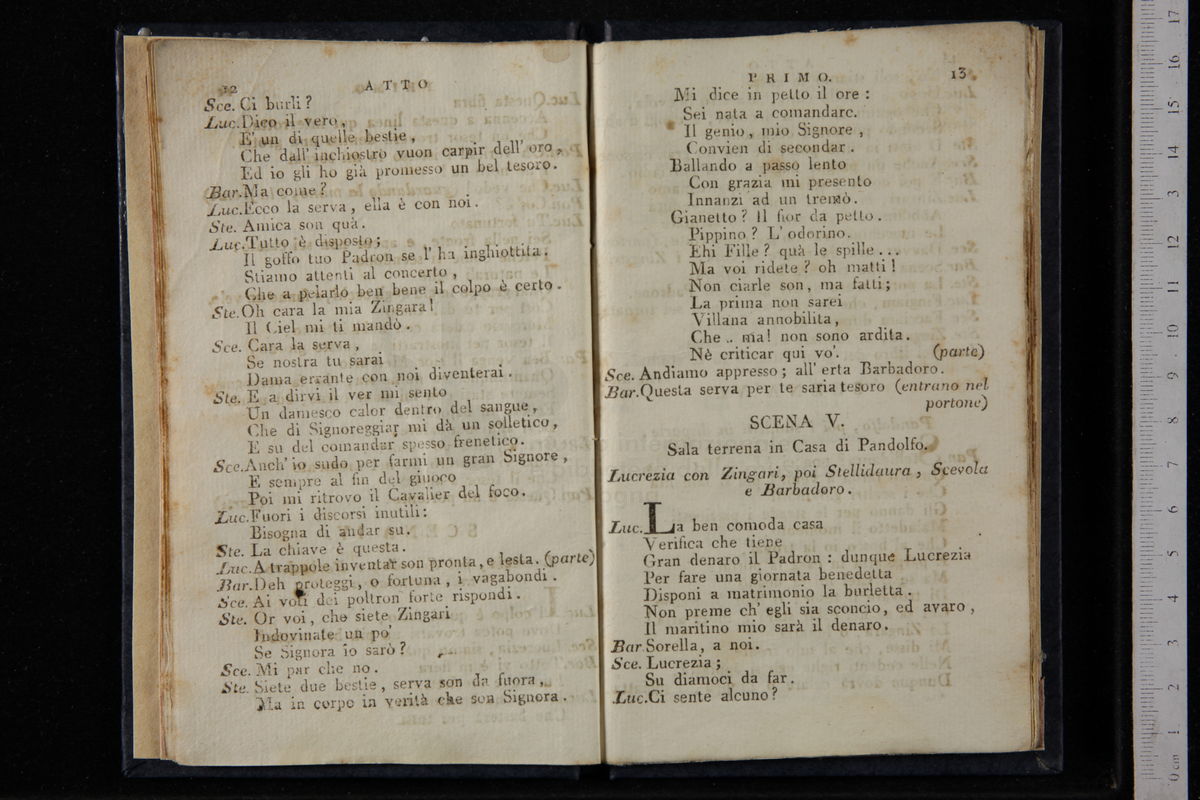 12 ATTO
Sce. Ci burli?
Luc. Dico il vero,
E' un di quelle bestie,
Che dall' inchiostro vuon carpir dell' oro,
Ed io gli ho già promesso un bel tesoro.
Bar. Ma come?
Luc. Ecco la serva, ella è con noi.
Ste. Amica son quà.
Luc. Tutto è disposto;
Il goffo tuo Padron se l' ha inghiottita.
Stiamo attenti al concerto,
Che a pelarlo ben bene il colpo è certo.
Ste. Oh cara la mia Zingara!
Il Ciel mi ti mandò.
Sce. Cara la serva,
Se nostra tu sarai
Dama errante con noi diventerai.
Ste. E a dirvi il ver mi sento
Un damesco calor dentro del sangue,
Che di Signoreggiar mi dà un solletico,
E su del comandar spesso frenetico.
Sce. Anch' io sudo per farmi un gran Signore,
E sempre al fin del giuoco
Poi mi ritrovo il Cavalier del foco.
Luc. Fuori i discorsi inutili:
Bisogna di andar su.
Ste. La chiave è questa.
Luc. A trappole inventar son pronta, e lesta. (parte)
Bar. Deh proteggi, o fortuna, i vagabondi.
Sce. Ai voti dei poltron forte rispondi.
Ste. Or voi, che siete Zingari
Indovinate un po'
Se Signora io sarò?
Sce. Mi par che no.
Ste. Siete due bestie, serva son da fuora,
Ma in corpo in verità che son Signora.
PRIMO. 13
Mi dice in petto il ore:
Sei nata a comandare.
Il genio, mio Signore,
Convien di secondar.
Ballando a passo lento
Con grazia mi presento
Innanzi ad un tremò.
Gianetto? Il fior da petto.
Pippino? L' odorino.
Ehi Fille? quà le spille...
Ma voi ridete? oh matti!
Non ciarle son, ma fatti;
La prima non sarei
Villana annobilita,
Che .. ma! non sono ardita.
Nè criticar qui vo'. (parte)
Sce. Andiamo appresso; all' erta Barbadoro.
Bar. Questa serva per te saria tesoro (entrano nel
portone)
SCENA V.
Sala terrena in Casa di Pandolfo.
Lucrezia con Zingari, poi Stellidaura, Scevola
e Barbadoro.
Luc. La ben comoda casa
Verifica che tiene
Gran denaro il Padron: dunque Lucrezia
Per fare una giornata benedetta
Disponi a matrimonio la burletta.
Non preme ch' egli sia sconcio, ed avaro,
Il maritino mio sarà il denaro.
Bar. Sorella, a noi.
Sce. Lucrezia;
Su diamoci da far.
Luc. Ci sente alcuno?
0 cm 1 2 3 4 5 6 7 8 9 10 11 12 13 14 15 16 17